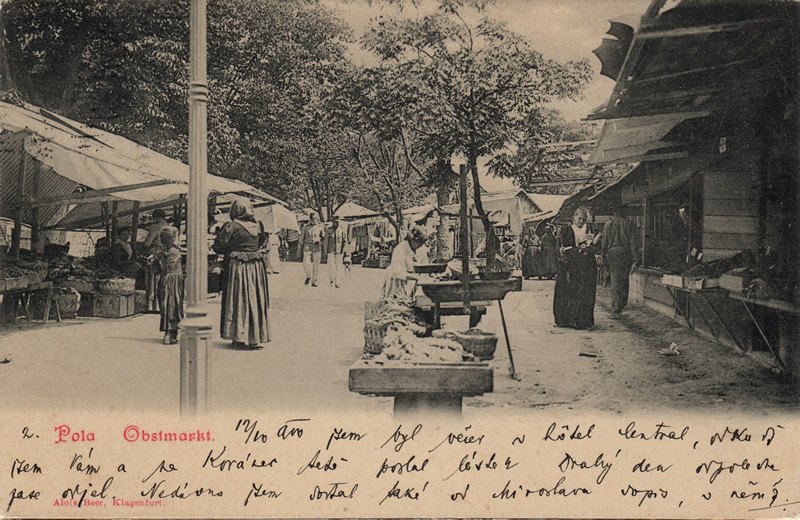 2. Pola Obstmarkt. 12/10 900 jsem byl večer v hôtel Central, odkud
jsem Vám a na Kovánec také poslal lístek Druhý den odpoledne
zase odjel. Nedávno jsem dostal také od Miroslava dopis, v němž
Alois Beer, Klagenfurt.